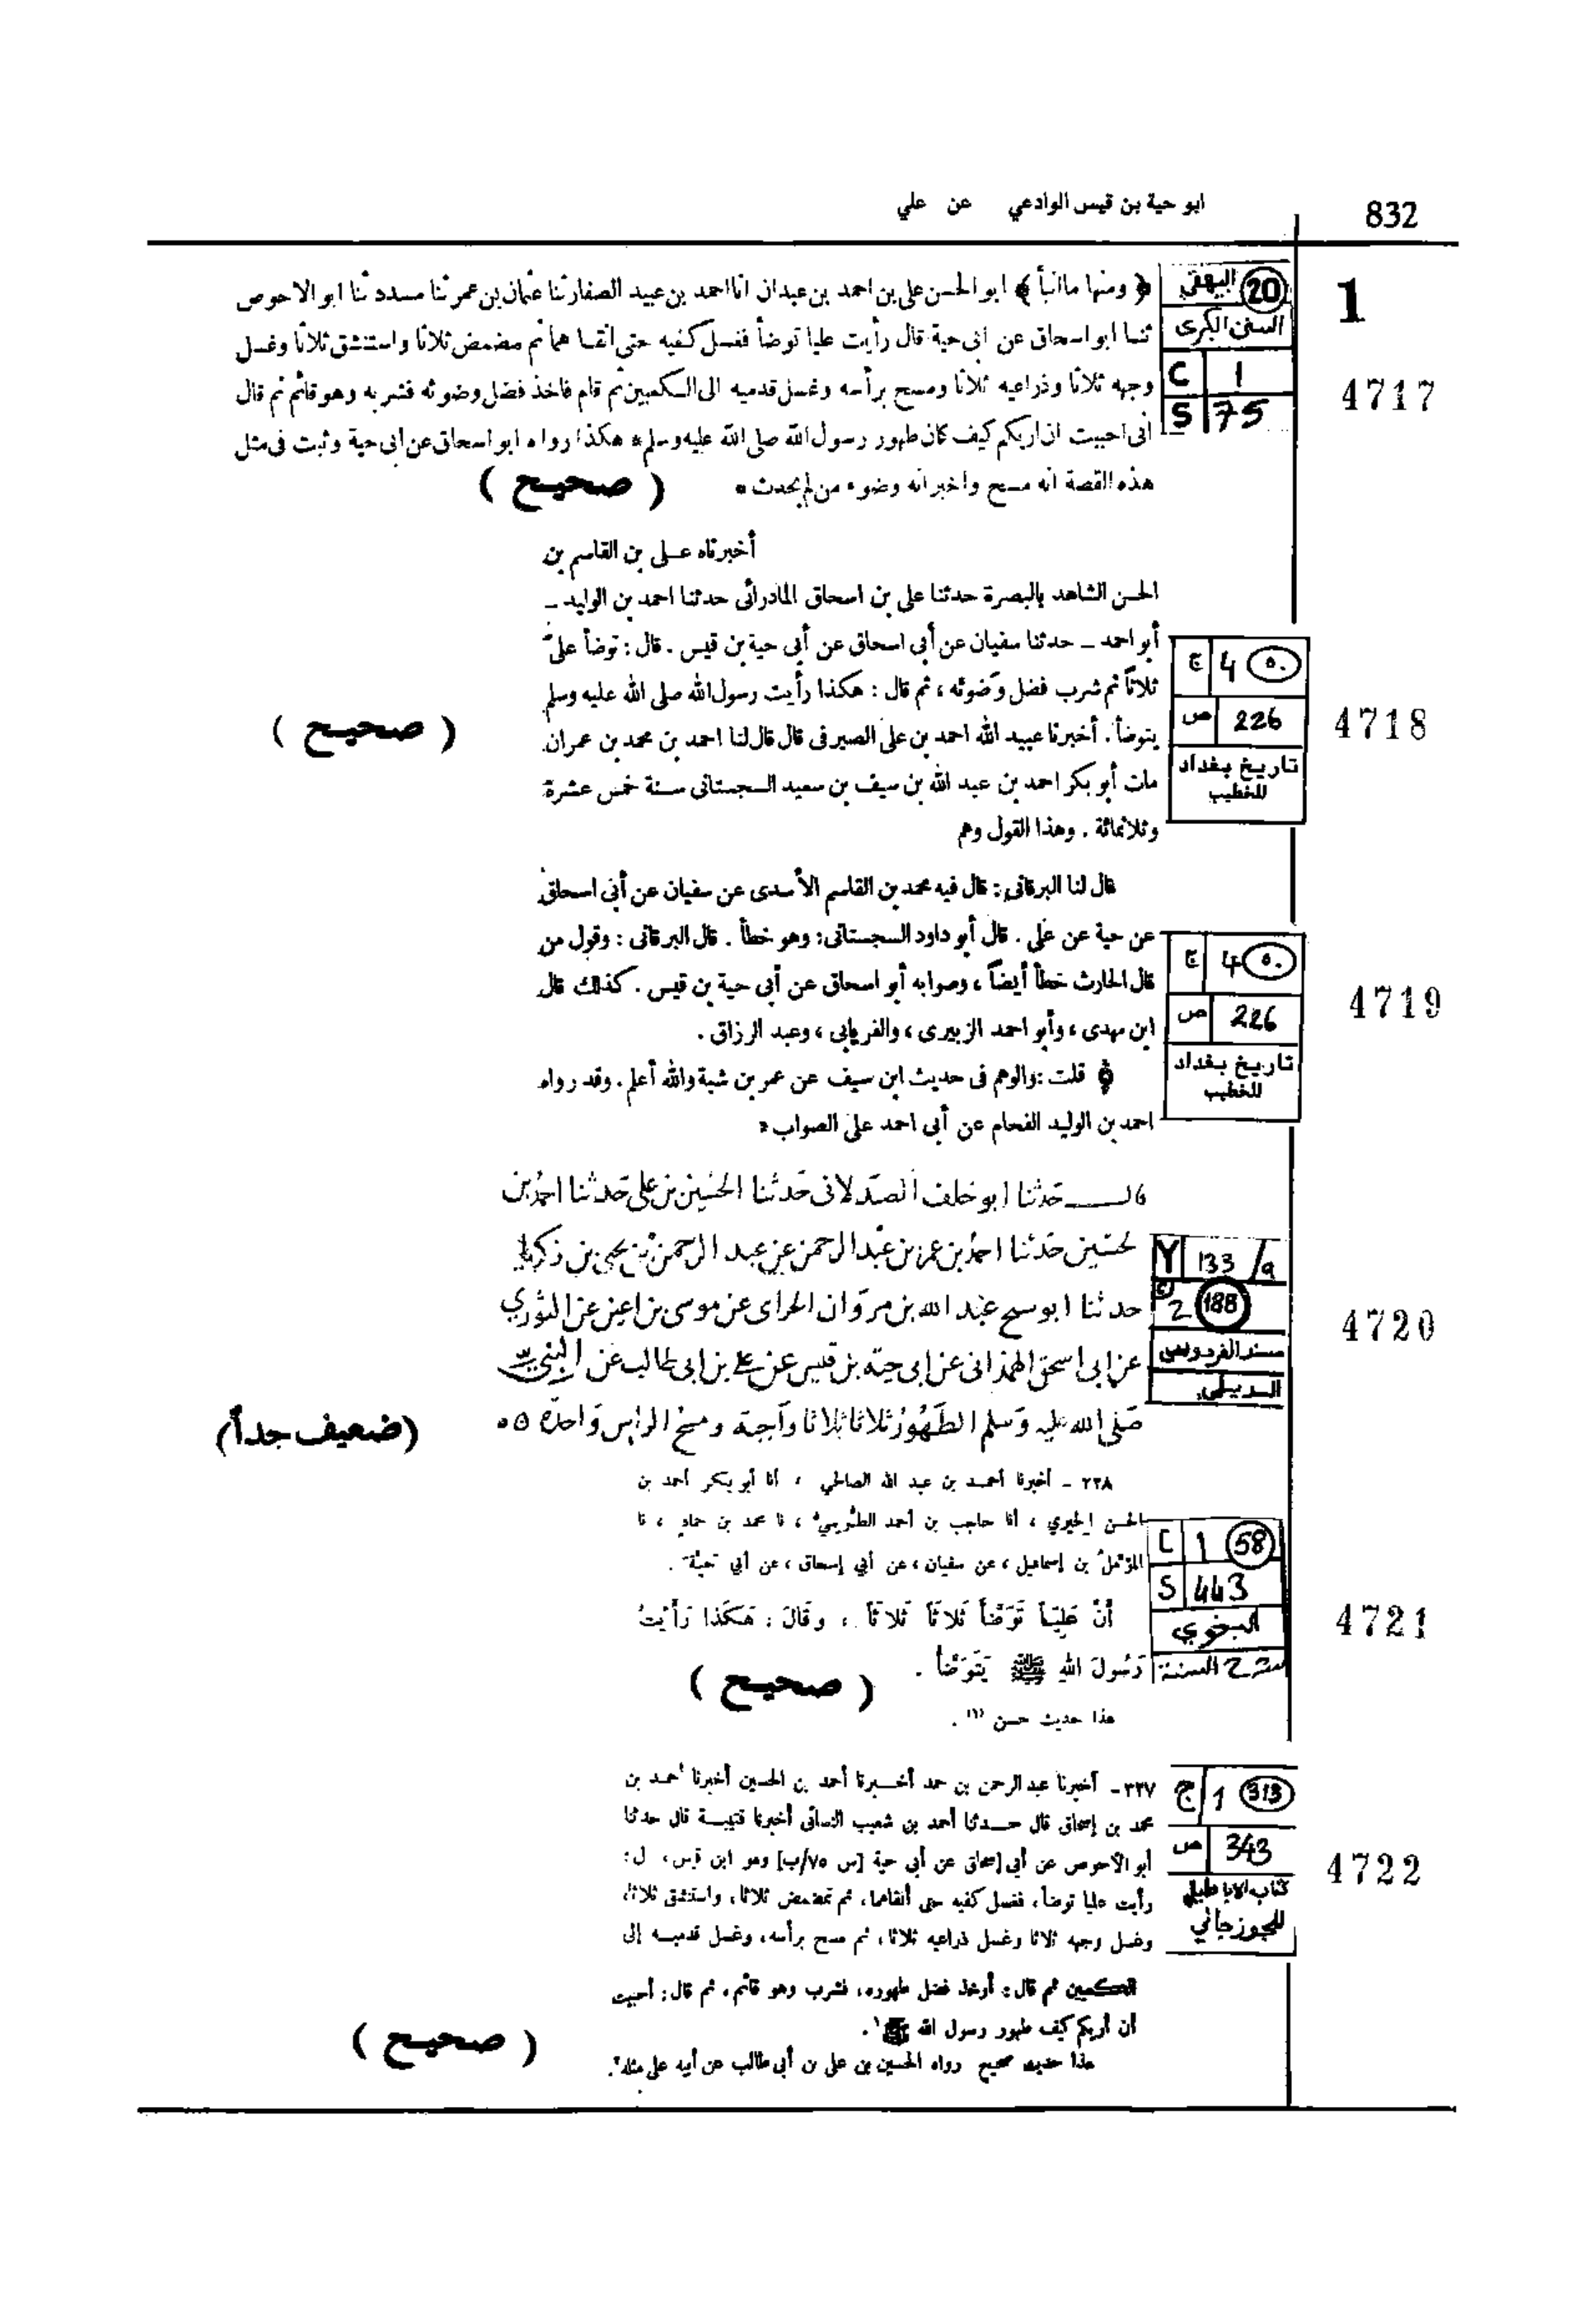 832
ابو حية بن قيس الوادعي عن علي
1
20 البيهقي
السنن الكبرى
C 1
S 75
4717
﴿ ومنها ماانبأ ﴾ ابو الحسن علي بن احمد بن عبدان انا احمد بن عبيد الصفار ثنا عثمان بن عمر ثنا مسدد ثنا ابو الاحوص
ثنا ابو اسحاق عن ابى حية قال رأيت عليا توضأ فغسل كفيه حتى انقاهما ثم مضمض ثلاثا واستنشق ثلاثا وغسل
وجهه ثلاثا وذراعيه ثلاثا ومسح برأسه وغسل قدميه الى الكعبين ثم قام فاخذ فضل وضوئه فشربه وهو قائم ثم قال
انى احببت ان اريكم كيف كان طهور رسول الله صلى الله عليه وسلم * هكذا رواه ابو اسحاق عن ابى حية وثبت فى مثل
هذه القصة انه مسح واخبر انه وضوء من لم يحدث *
( صحيح )
أخبرناه على بن القاسم بن
الحسن الشاهد بالبصرة حدثنا على بن اسحاق المادرائى حدثنا احمد بن الوليد ــ
أبو احمد ــ حدثنا سفيان عن أبى اسحاق عن أبى حية بن قيس . قال : توضأ علىّ
ثلاثاً ثم شرب فضل وَضوئه ، ثم قال : هكذا رأيت رسول الله صلى الله عليه وسلم
يتوضأ . أخبرنا عبيد الله احمد بن على الصيرفى قال قال لنا احمد بن محمد بن عمران
مات أبو بكر احمد بن عبد الله بن سيف بن سعيد السجستانى سنة خمس عشرة
وثلاثمائة . وهذا القول وهم
ج 4 ٥٠
ص 226
تاريخ بغداد
للخطيب
4718
( صحيح )
قال لنا البرقانى : قال فيه محمد بن القاسم الأسدى عن سفيان عن أبى اسحاق
عن حية عن على . قال أبو داود السجستانى : وهو خطأ . قال البرقانى : وقول من
قال الحارث خطأ أيضاً ، وصوابه أبو اسحاق عن أبى حية بن قيس . كذلك قال
ابن مهدى ، وأبو احمد الزبيرى ، والفريابى ، وعبد الرزاق .
قلت : والوهم فى حديث ابن سيف عن عمر بن شبة والله أعلم . وقد رواه
احمد بن الوليد الفحام عن أبى احمد على الصواب *
ج 4 ٥٠
ص 226
تاريخ بغداد
للخطيب
4719
قالـــ حَدثنا ابو خلف الصَّدلانى حَدثنا الحسَين بن على حَدثنا احمد بن
لحسَين حَدثنا احمد بن عمر بن عبْد الرحمن عن عبد الرحمن بن يحيى بن زكريا
حدثنا ابو سح عبْد الله بن مروَان الحرانى عن موسى بن اعين عن الثوري
عن ابى اسحق الهمذانى عن ابى حيّه بن قيس عن على بن ابى طالب عن النبى
صَلى الله عليه وَسلم الطَهُورُ ثلاثا ثلاثا وَاجبَة ومسح الراس وَاحدَة ٥٠
Y 133 /a
2 188
مسند الفردوس
الديلمي
4720
(ضعيف جداً)
٢٢٨ - أخبرنا أحمد بن عبد الله الصالحي ، أنا أبو بكر أحمد بن
الحسن الحيري ، أنا حاجب بن أحمد الطوسي ، نا محمد بن حماد ، نا
المؤمّل بن إسماعيل ، عن سفيان ، عن أبي إسحاق ، عن أبي حيّة .
أَنَّ عَلِيّاً تَوَضَّأَ ثَلاثَاً ثَلاثَاً . ، وقَالَ : هَكَذا رَأَيْتُ
رَسُولَ اللهِ ﷺ يَتَوَضَّأ .
هذا حديث حسن (١) .
C 1 58
S 443
البغوي
شرح السنة
4721
( صحيح )
٣٣٧- أخبرنا عبد الرحمن بن حمد أخبرنا أحمد بن الحسين أخبرنا أحمد بن
محمد بن إسحاق قال حدثنا أحمد بن شعيب النسائى أخبرنا قتيبة قال حدثنا
أبو الأحوص عن أبي إسحاق عن أبي حية [س ٧٥/ب] وهو ابن قيس، ل :
رأيت عليا توضأ، فغسل كفيه حتى أنقاهما، ثم تمضمض ثلاثا، واستنشق ثلاثا،
وغسل وجهه ثلاثا وغسل ذراعيه ثلاثا، ثم مسح برأسه، وغسل قدميه إلى
الكعبين ثم قال : أرخذ فضل طهوره، فشرب وهو قائم، ثم قال : أحببت
أن أريكم كيف طهور رسول الله ﷺ ١.
هذا حديث صحيح رواه الحسين بن على بن أبى طالب عن أبيه على مثله٢.
ج 1 313
ص 343
كتاب الاباطيل
للجوزجاني
4722
( صحيح )